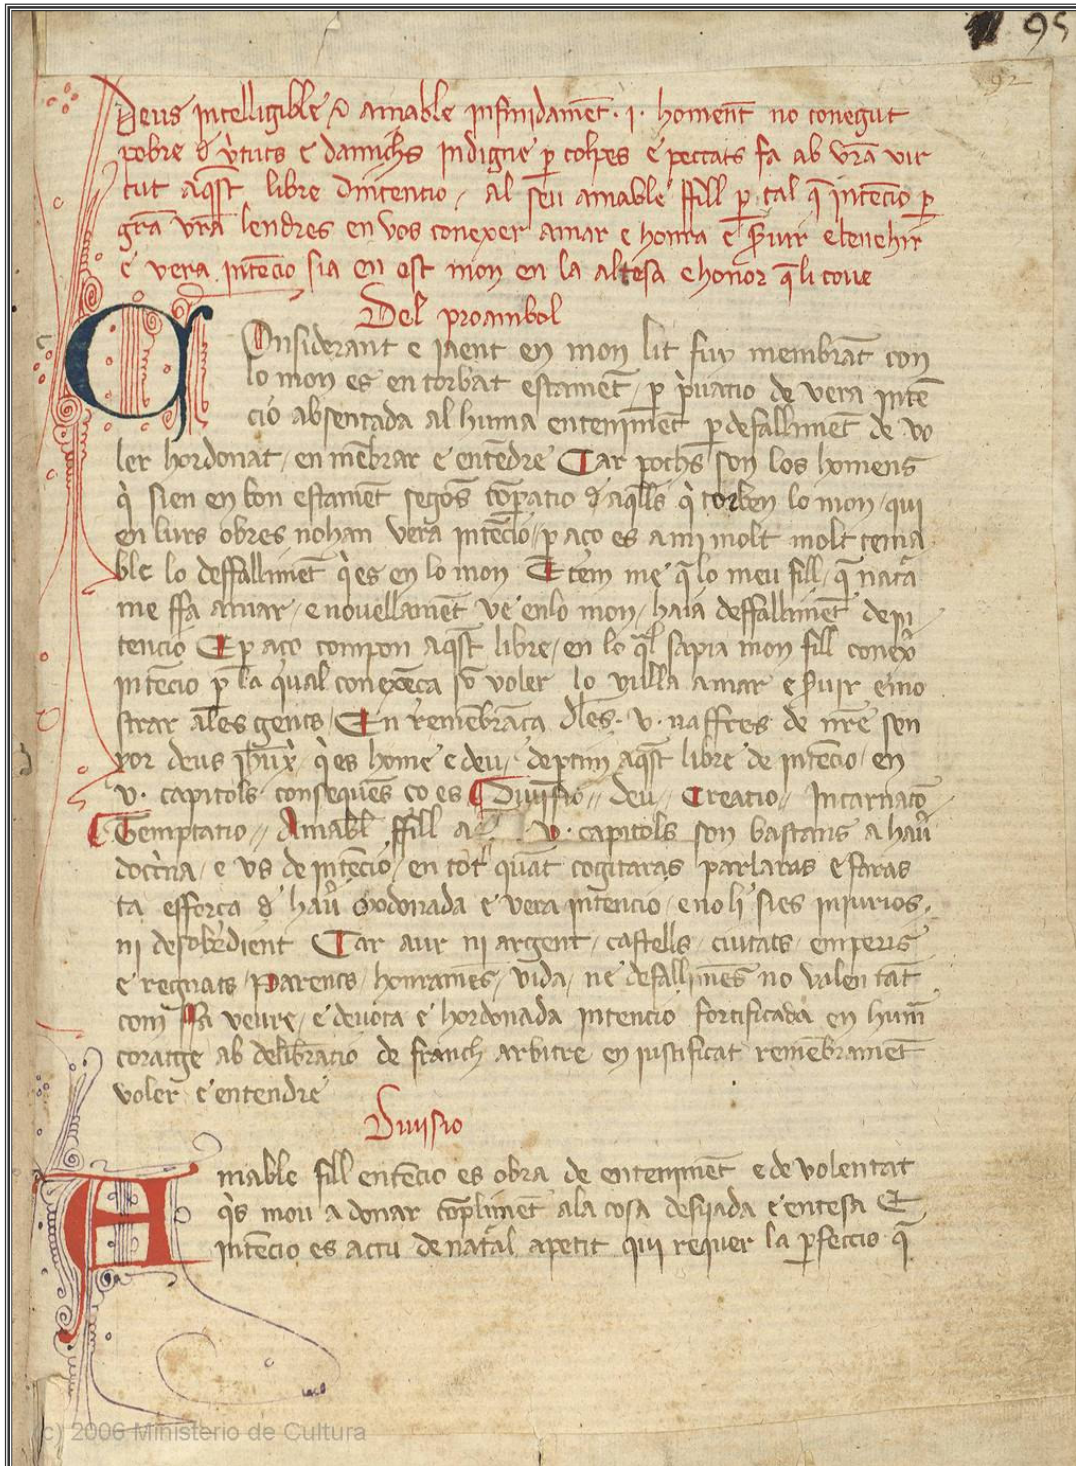 95
92
Deus intelligible e amable infinidamēt · i · homenēt no conegut
pobre d' v̓tuts e damichs indigne p̱ colpes e peccats fa ab vr̄a vir
tut aq̄st libre dintencio / al seu amable ffill p̱ tal q̄ intēcio p̱
gr̄a vr̄a lendres en vos conexer amar e honra e s̓uir e benehir
e vera intēcio sia en est mon en la altesa e honor q̄ li coue
Del proambol
COnsiderant e iaent en mon lit fuy membrāt con
lo mon es en torbat estamēt / p̱ p̓uacio de vera intē
cio absentada al huma entenimēt p̱ defallimēt de vo
ler hordonat / en mēbrar e entēdre Car pochs son los homens
q̓ sien en bon estamēt segons cōp̱atio d' aq̄lls q̓ torben lo mon / qui
en lurs obres no han vera intēcio / p̱ aco es a mi molt molt tema
ble lo deffallimēt q̓ es en lo mon E tem me q̄ lo meu fill / q̄ nat̄a
me ffa amar / e nouellamēt ve en lo mon / haia deffallimēt de in
tencio E p̱ aco compon aq̄st libre / en lo q̄l sapia mon fill conex̓
intēcio p̱ la qual conexēca sō voler lo vulla amar e s̓uir e mo
strar a les gents / En remēbrāca dl̄es · v · naffres de nr̄e sen
yor deus ih̄u x̓ q̓ es home e deu / deptim aq̄st libre de intēcio / en
v · capitols consequēs co es Diuisio // deu // Creatio // Incarnatō
Temptatio // Amabl̄ ffill a v · capitols son bastans a hau̓
doct̓na / e vs de intēcio / en tot quāt cogitaras parlaras e faras
ta efforca d' hau̓ ordonada e vera intencio / e no li sies iniurios /
ni desobedient Car aur ni argent / castells / ciutats / emperis
e regnats / Parents / honramēs / vida / ne defallimēs no valen tāt
com ffa veure / e deuota e hordonada intencio fortificada en humā
coratge ab delib̄acio de franch arbitre en iustificat remēbramēt
voler e entendre
Diuisio
Amable fill entēcio es obra de entenimēt e de volentat
q̓s mou a donar cōplimēt a la cosa desijada e entesa E
intēcio es actu de nat̄al apetit qui requer la p̱feccio q̄
(c) 2006 Ministerio de Cultura